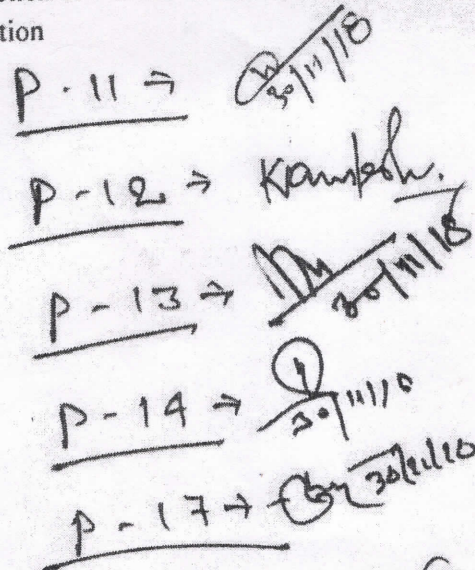 tion
P - 11 → 30/11/18
P - 12 → Kamlesh.
P - 13 → 30/11/18
P - 14 → 30/11/18
P - 17 →